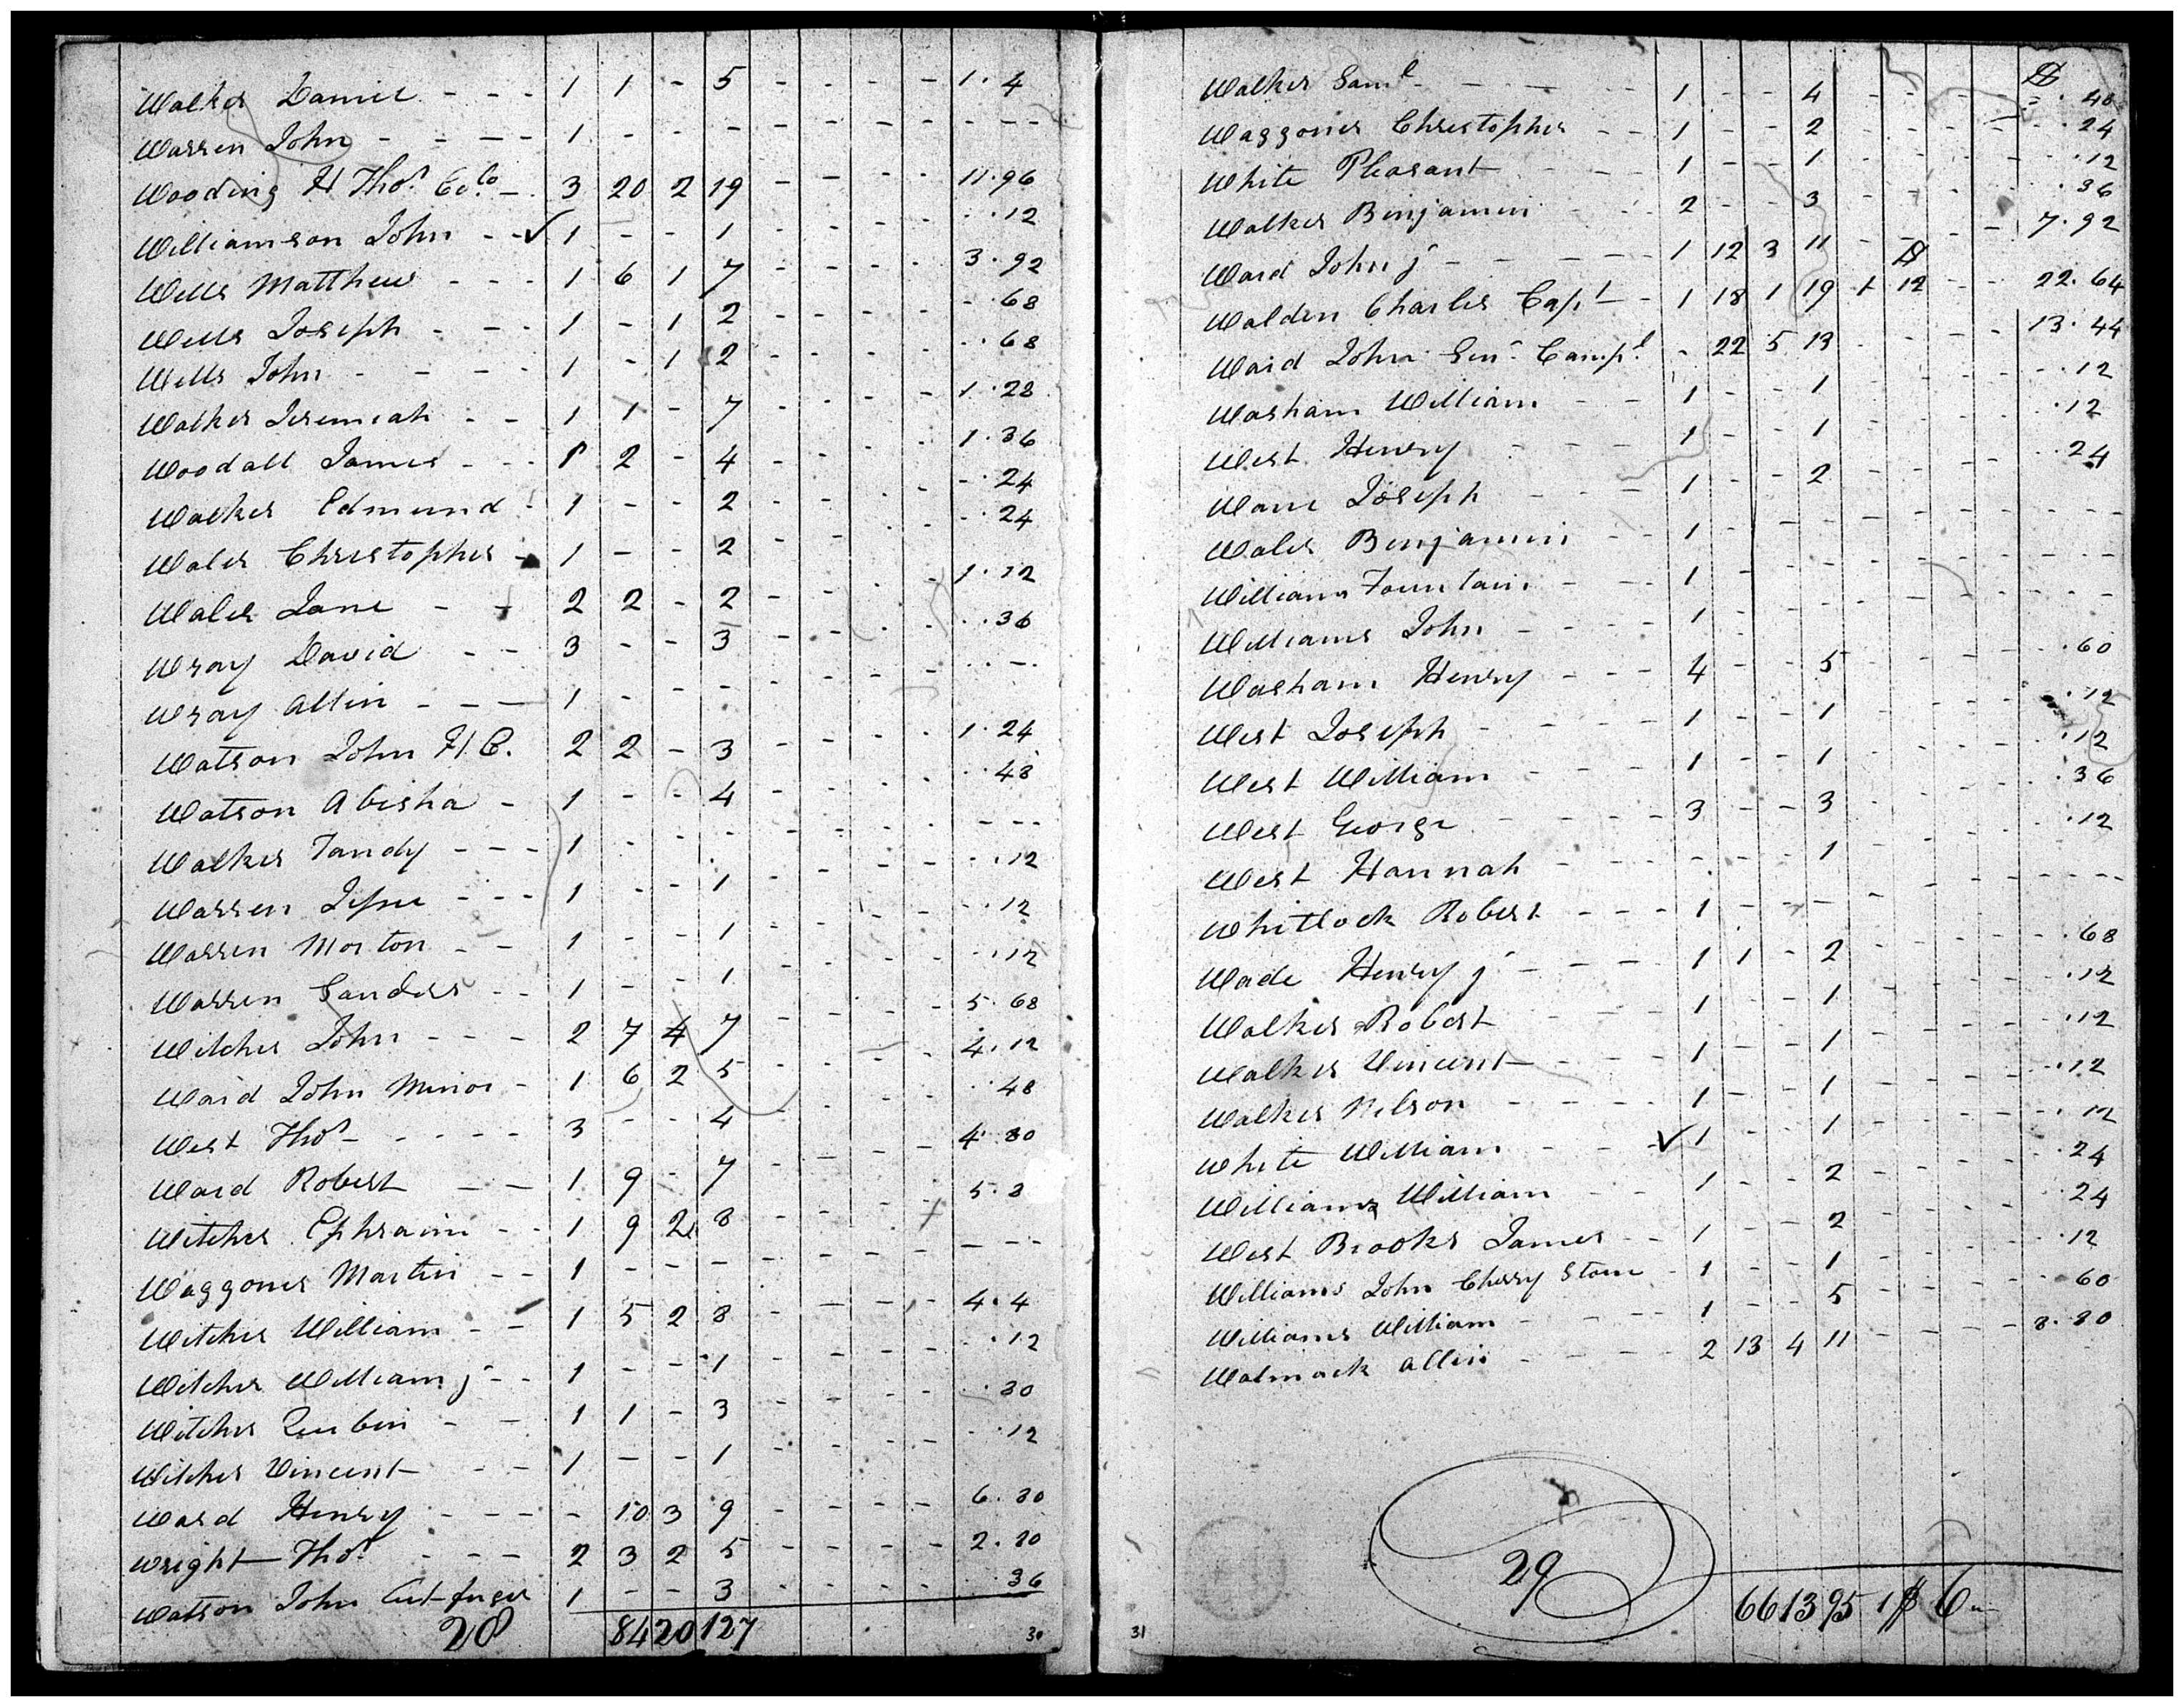 Walker Daniel - - - 1 1 - 5 - - - - 1.4
Warren John - - - - 1 - - - - - - - - - -
Wooding H Thos. Colo. - 3 20 2 19 - - - - 11.96
Williamson John - - ✓ 1 - - 1 - - - - .12
Wells Matthew - - - 1 6 1 7 - - - - 3.92
Wells Joseph - - - 1 - 1 2 - - - - .68
Wells John - - - - 1 - 1 2 - - - - .68
Walker Jeremiah - - 1 1 - 7 - - - - 1.28
Woodall James - - - 1 2 - 4 - - - - 1.36
Walker Edmund - 1 - - 2 - - - - .24
Waler Christopher - 1 - - 2 - - - - .24
Waler Jane - - 2 2 - 2 - - - - 1.12
Wray David - - 3 - - 3 - - - - .36
Wray Allin - - - 1 - - - - - - - - -
Watson John H C. 2 2 - 3 - - - - 1.24
Watson Abisha - 1 - - 4 - - - - .48
Walker Tandy - - - 1 - - - - - - - - - -
Warren Jesse - - - 1 - - 1 - - - - .12
Warren Morton - - 1 - - 1 - - - - .12
Warren Sanders - - 1 - - 1 - - - - .12
Witcher John - - - 2 7 4 7 - - - - 5.68
Ward John Minor - 1 6 2 5 - - - - 4.12
West Thos. - - - - 3 - - 4 - - - - .48
Ward Robert - - 1 9 - 7 - - - - 4.80
Witcher Ephraim - - 1 9 2 8 - - - - 5.8
Waggoner Martin - - 1 - - - - - - - - - -
Witcher William - - 1 5 2 8 - - - - 4.4
Witcher William j - - 1 - - 1 - - - - .12
Witcher Reubin - - 1 1 - 3 - - - - .80
Witcher Vincent - - 1 - - 1 - - - - .12
Ward Henry - - - - 10 3 9 - - - - 6.30
Wright Thos. - - - 2 3 2 5 - - - - 2.80
Watson John Cut finger 1 - - 3 - - - - .36
28 84 20 127
30
$
Walker Saml. - - - - 1 - - 4 - - - - .48
Waggoner Christopher - - 1 - - 2 - - - - .24
White Pleasant - - - 1 - - 1 - - - - .12
Walker Binjamin - - - 2 - - 3 - - - - .36
Ward John j - - - - - 1 12 3 11 - - - - 7.92
$
Walden Charles Capt. - 1 18 1 19 1 12 - - 22.64
Ward John Senr. Campl. - 22 5 13 - - - - 13.44
Washam William - - 1 - - 1 - - - - .12
West Henry - - - 1 - - 1 - - - - .12
Ware Joseph - - - 1 - - 2 - - - - .24
Waler Benjamin - - 1 - - - - - - - - - -
Williams Fountain - - - 1 - - - - - - - - -
Williams John - - - - 1 - - - - - - - - -
Washam Henry - - - 4 - - 5 - - - - .60
West Joseph - - - - 1 - - 1 - - - - .12
West William - - - 1 - - 1 - - - - .12
West George - - - - 3 - - 3 - - - - .36
West Hannah - - - - - - - 1 - - - - .12
Whitlock Robert - - - 1 - - - - - - - - - -
Wade Henry j - - - 1 1 - 2 - - - - .68
Walker Robert - - - 1 - - 1 - - - - .12
Walker Vincent - - - 1 - - 1 - - - - .12
Walker Nelson - - - - 1 - - 1 - - - - .12
White William - - - ✓ 1 - - 1 - - - - .12
Williams William - - 1 - - 2 - - - - .24
West Brooks James - - 1 - - 2 - - - - .24
Williams John Cherry Stone - 1 - - 1 - - - - .12
Williams William - - - 1 - - 5 - - - - .60
Walmack Allin - - - - 2 13 4 11 - - - - 8.80
29
66 13 95 1 $ 6
31